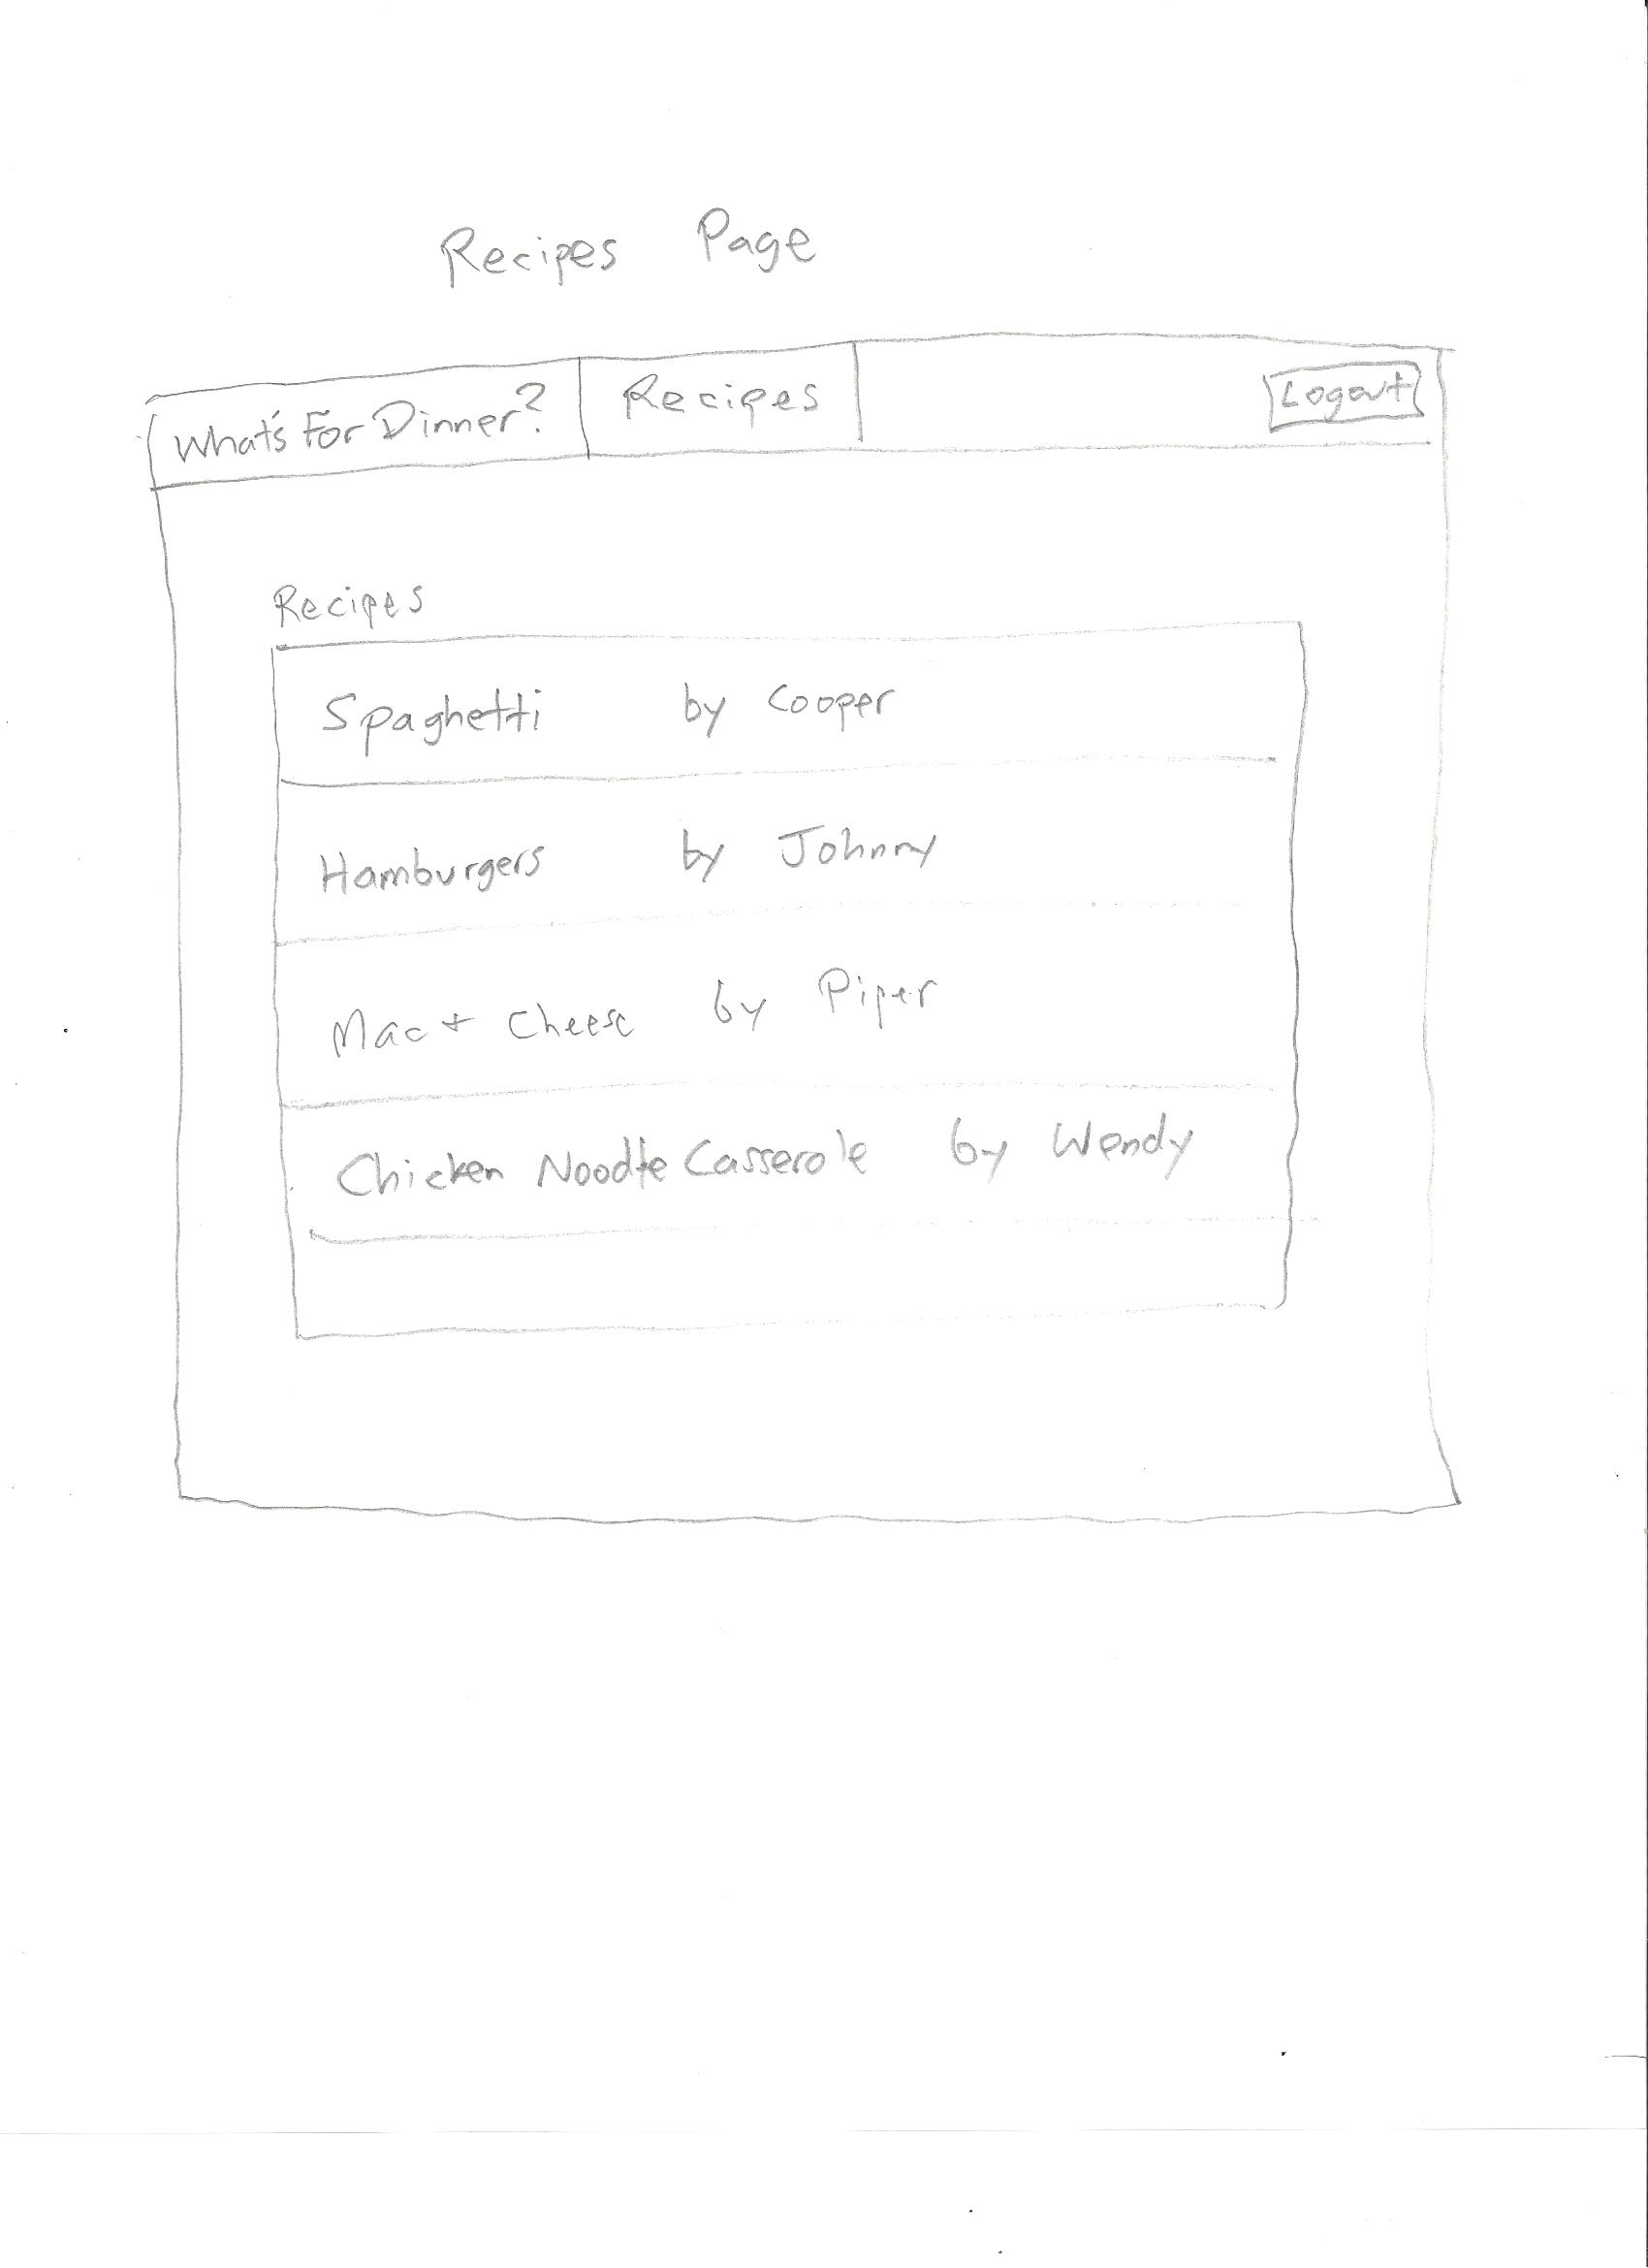 Recipes Page
What's For Dinner? Recipes Logout
Recipes
Spaghetti by Cooper
Hamburgers by Johnny
Mac + Cheese by Piper
Chicken Noodle Casserole by Wendy